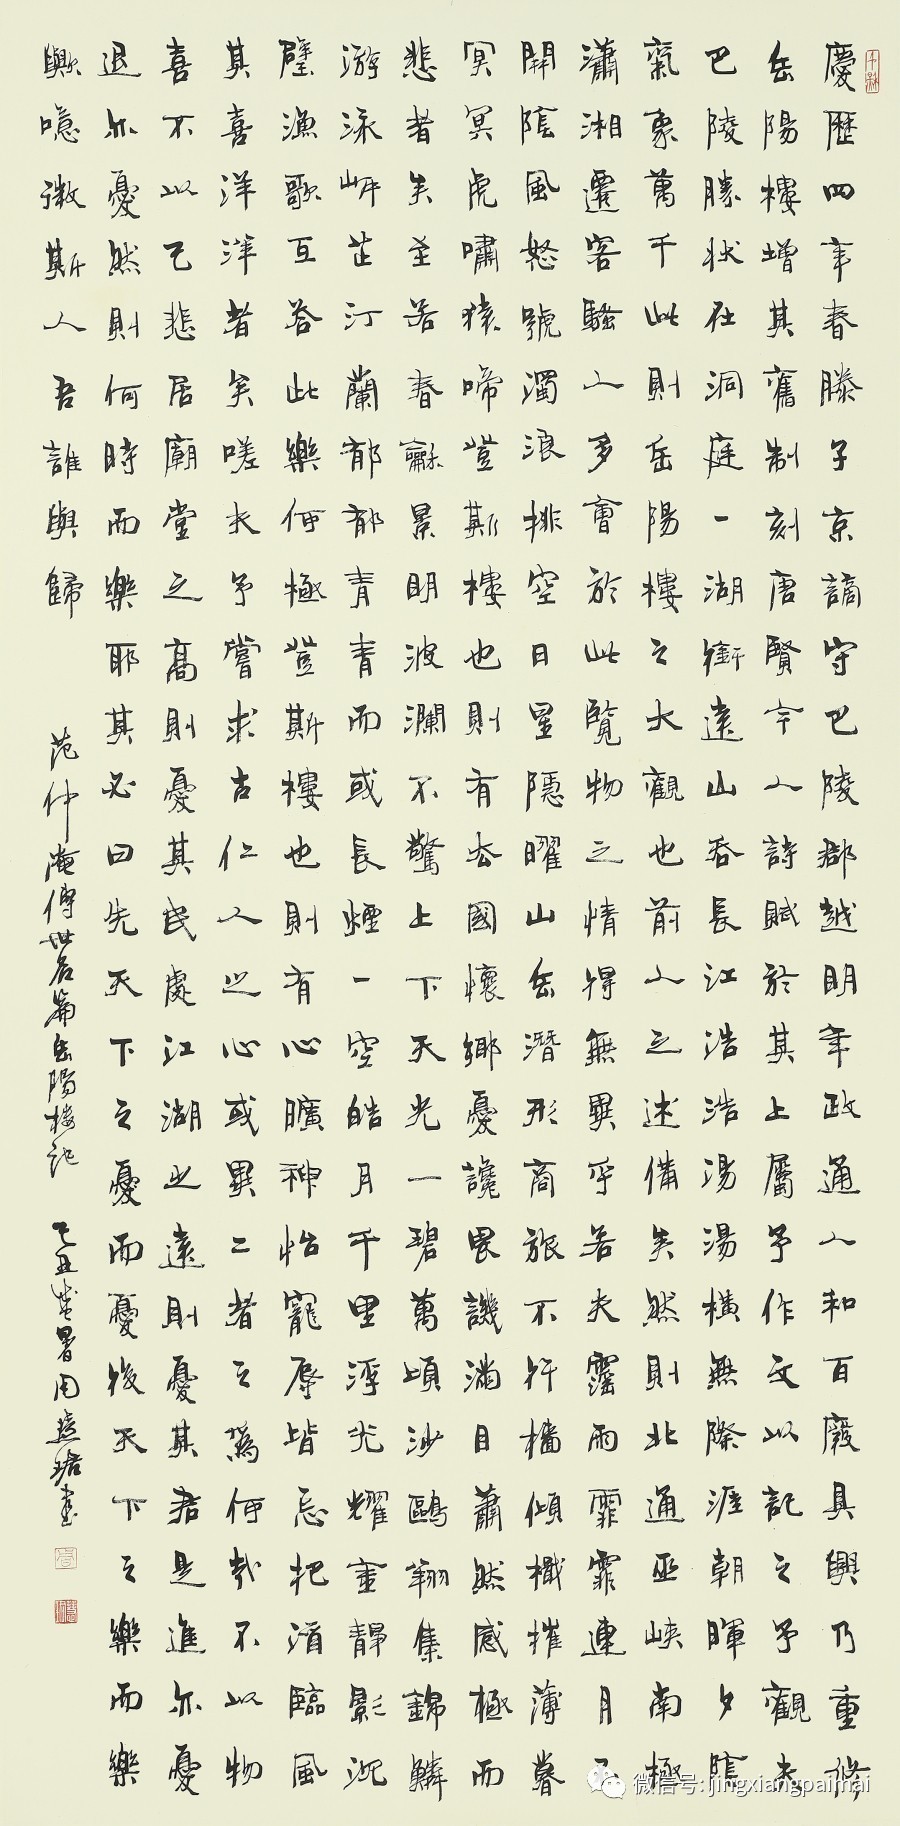 慶歷四年春滕子京謫守巴陵郡越明年政通人和百廢具興乃重修
岳陽樓增其舊制刻唐賢今人詩賦於其上屬予作文以記之予觀夫
巴陵勝狀在洞庭一湖銜遠山吞長江浩浩湯湯橫無際涯朝暉夕陰
氣象萬千此則岳陽樓之大觀也前人之述備矣然則北通巫峽南極
瀟湘遷客騷人多會於此覽物之情得無異乎若夫霪雨霏霏連月不
開陰風怒號濁浪排空日星隱曜山岳潛形商旅不行檣傾檝摧薄暮
冥冥虎嘯猿啼登斯樓也則有去國懷鄉憂讒畏譏滿目蕭然感極而
悲者矣至若春龢景明波瀾不驚上下天光一碧萬頃沙鷗翔集錦鱗
游泳岸芷汀蘭郁郁青青而或長煙一空皓月千里浮光耀金靜影沉
璧漁歌互荅此樂何極登斯樓也則有心曠神怡寵辱皆忘把酒臨風
其喜洋洋者矣嗟夫予嘗求古仁人之心或異二者之為何哉不以物
喜不以己悲居廟堂之高則憂其民處江湖之遠則憂其君是進亦憂
退亦憂然則何時而樂耶其必曰先天下之憂而憂後天下之樂而樂
歟噫微斯人吾誰與歸
范仲淹傳世名篇岳陽樓記 己丑盛暑周慧珺書
微信号: jingxiangpaimai